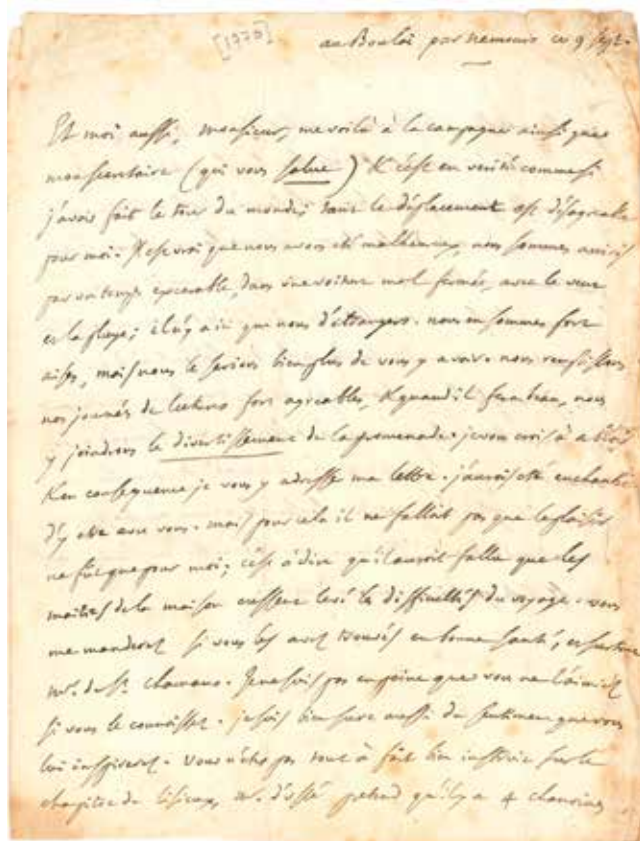 [1770]
au Boulai par nemours ce 9 sept.
Et moi aussi, monsieur, me voilà à la campagne ainsi que
mon secretaire (qui vous salue) & c'est en verité comme si
j'avois fait le tour du monde; tant le déplacement est désagreable
pour moi. Il est vrai que nous avons été malheureux, nous sommes arrivés
par un temps execrable, dans une voiture mal fermée, avec le vent
et la pluye; il n'y a ici que nous d'etrangers. nous en sommes fort
aises, mais nous le serions bien plus de vous y avoir. nous remplissons
nos journées de lectures fort agreables, & quand il fera beau, nous
y joindrons le divertissement de la promenade. je vous crois à
& en consequence je vous y adresse ma lettre. j'aurois été enchantée
d'y etre avec vous. mais pour cela il ne falloit pas que le plaisir
ne fût que pour moi; c'est à dire qu'il auroit fallu que les
maitres de la maison eussent levé les difficultés du voyage. vous
me manderez si vous les avez trouvés en bonne santé, et surtout
mr. de st. chamans. Je ne suis pas en peine que vous ne l'aimiez
si vous le connoissez. je suis bien sure aussi du sentiment que vous
lui inspirerez. vous n'êtes pas tout à fait bien instruit sur le
chapitre de mr. d'ussé pretend qu'il y a 4